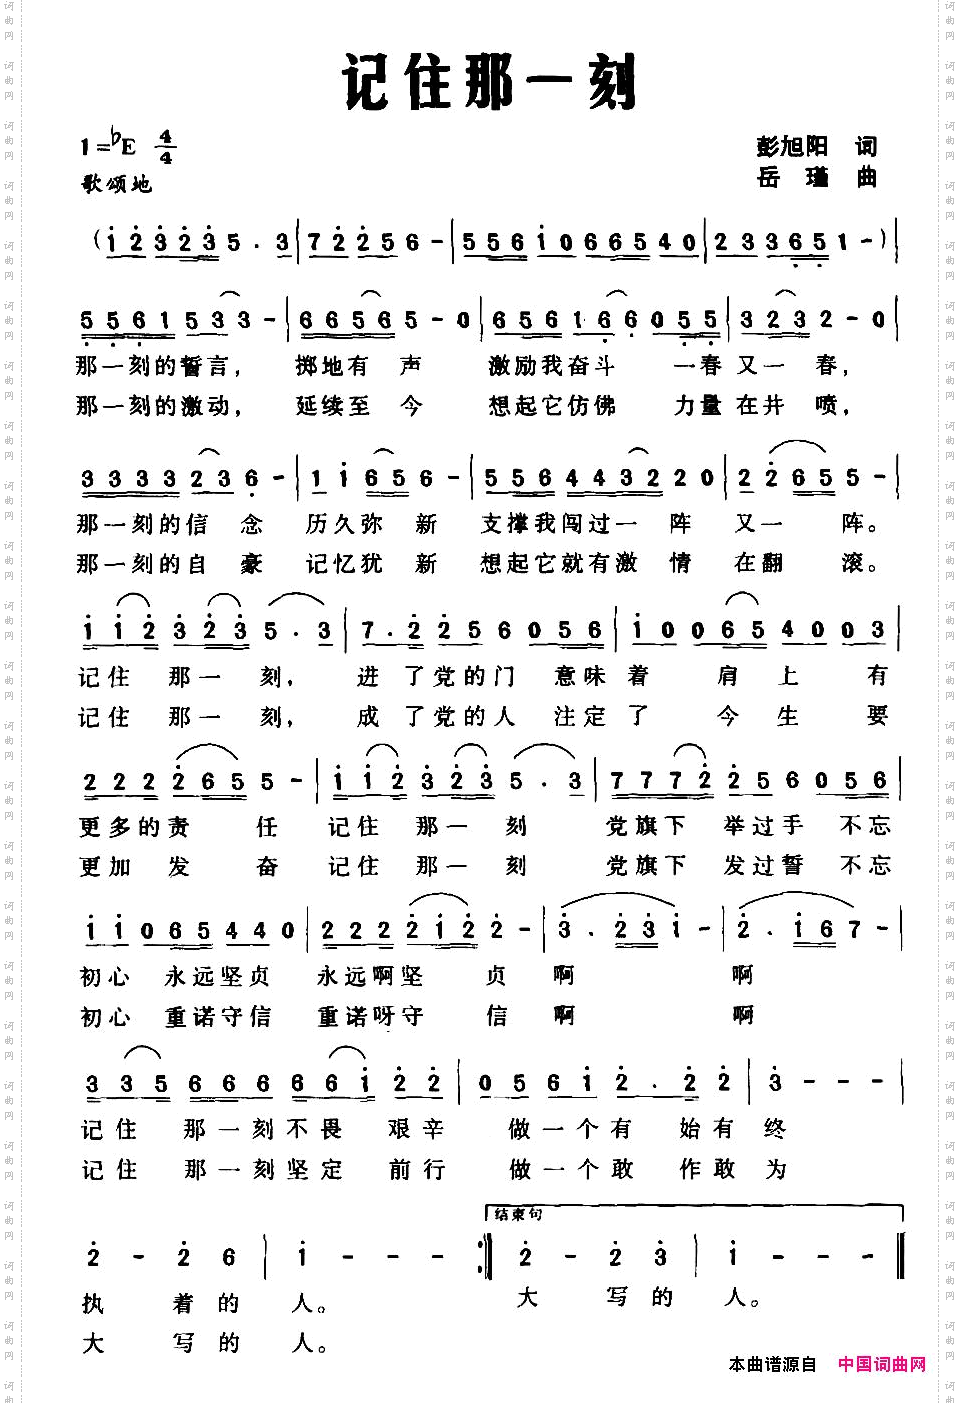 记住那一刻
1=♭E 4/4
彭旭阳 词
歌颂地
岳 瑾 曲
(1 2 3 2 3 5 . 3 | 7 2 2 5 6 - | 5 5 6 1 0 6 6 5 4 0 | 2 3 3 6 5 1 - ) |
5 5 6 1 5 3 3 3 - | 6 6 5 6 5 - 0 | 6 5 6 1 6 6 0 5 5 | 3 2 3 2 - 0 |
那一刻的誓言， 掷地有 声 激励我奋斗 一春又一 春，
那一刻的激动， 延续至 今 想起它仿佛 力量在井 喷，
3 3 3 3 2 3 6 - | 1 1 6 5 6 - | 5 5 6 4 4 3 2 2 0 | 2 2 6 5 5 - |
那一刻的信 念 历久弥 新 支撑我闯过一 阵 又一 阵。
那一刻的自 豪 记忆犹 新 想起它就有激 情 在翻 滚。
1 1 2 3 2 3 5 . 3 | 7 . 2 2 2 5 6 0 5 6 | 1 0 0 6 5 4 0 0 3 |
记住 那一 刻， 进 了党的门 意味着 肩 上 有
记住 那一 刻， 成 了党的人 注定了 今 生 要
2 2 2 2 6 5 5 - | 1 1 2 3 2 3 5 . 3 | 7 7 7 2 2 5 6 0 5 6 |
更多的责 任 记住 那一 刻 党旗下 举过手 不忘
更加 发 奋 记住 那一 刻 党旗下 发过誓 不忘
1 1 0 6 5 4 4 0 | 2 2 2 2 1 2 2 - | 3 . 2 3 1 - | 2 . 1 6 7 - |
初心 永远坚贞 永远啊坚 贞 啊 啊
初心 重诺守信 重诺呀守 信 啊 啊
3 3 5 6 6 6 6 6 1 2 2 | 0 5 6 1 2 . 2 2 | 3 - - - |
记住 那一刻不畏 艰辛 做一个有 始有终
记住 那一刻坚定 前行 做一个敢 作敢为
结束句
2 - 2 6 | 1 - - - :‖ 2 - 2 3 | 1 - - - ‖
执 着的 人。 大 写的 人。
大 写的 人。
本曲谱源自 中国词曲网